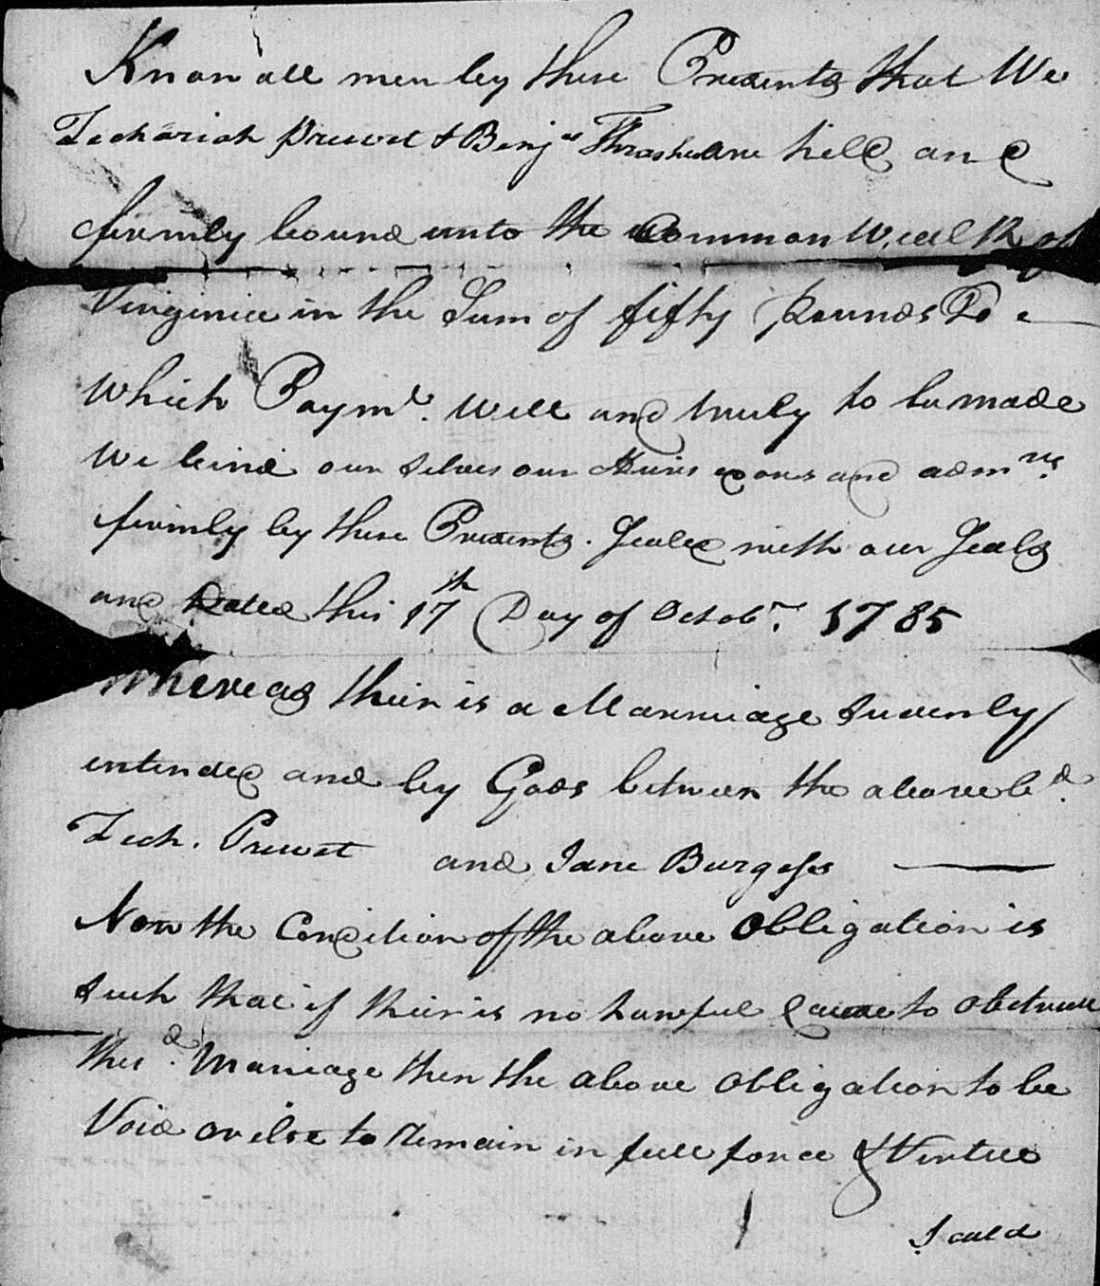 Know all men by these Presents that We
Zechariah Prewet & Benjª Thrasher are held and
firmly bound unto the Common Wealth of
Virginia in the Sum of fifty Pounds To
Which Paymt. Well and truly to be made
We bind our selves our Heirs exors and admrs.
firmly by these Presents. Sealed with our Seals
and Dated this 17th Day of Octobr. 1785
Whereas their is a Marriage Suddenly
intended and by Gods between the above bd.
Zech. Prewet and Jane Burgess
Now the Condition of the above Obligation is
Such that if their is no Lawful Cause to obstruct
the sd. Marriage then the above Obligation to be
Void or else to Remain in full force & Virtue
Seald